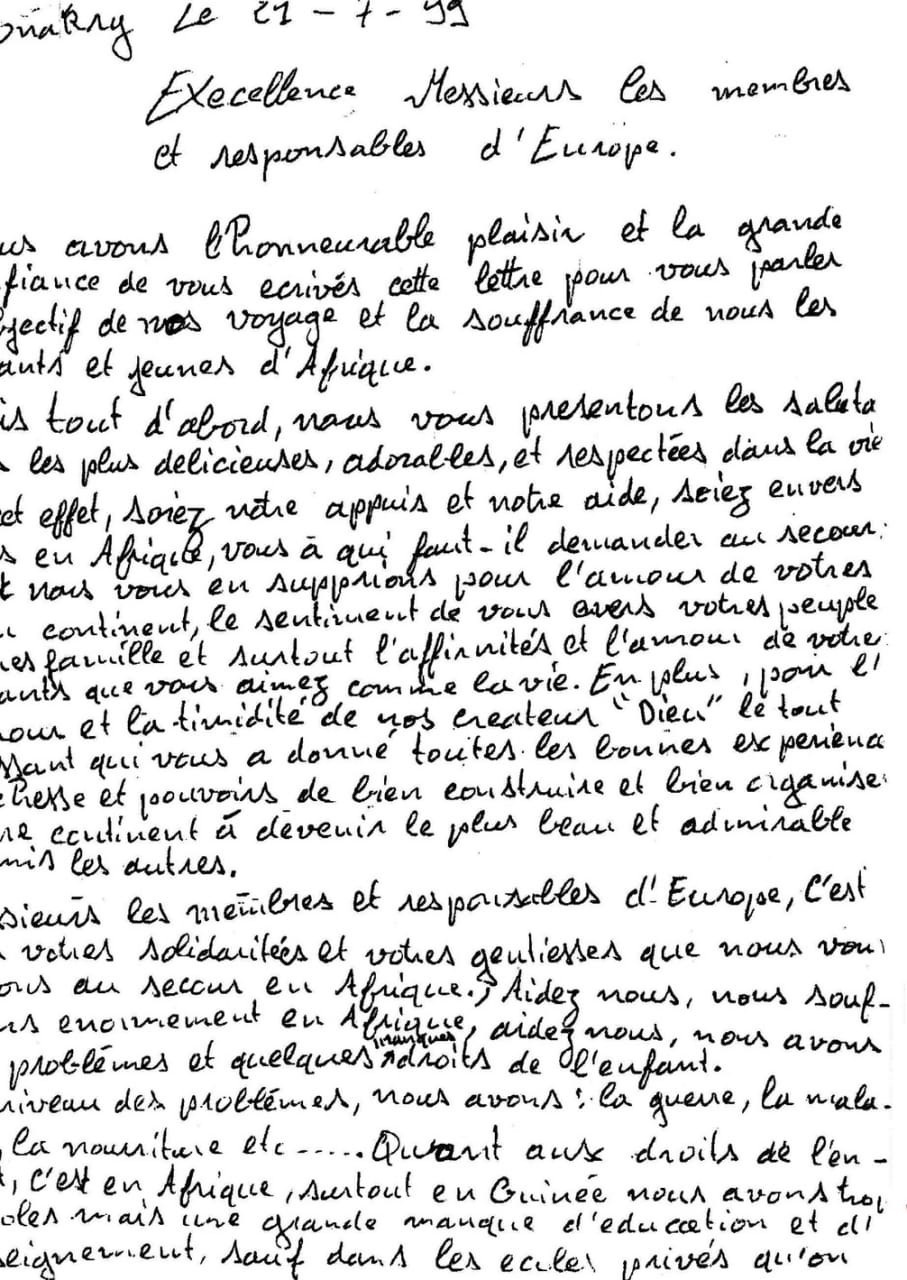 onakry Le 21 - 7 - 99
Execellence Messieurs les membres
et responsables d'Europe.
us avons l'honneurable plaisir et la grande
fiance de vous ecrivés cette lettre pour vous parler
jectif de nos voyage et la souffrance de nous les
ants et jeunes d'Afrique.
is tout d'abord, nous vous presentons les saluta
les plus delicieuses, adorables, et respectées dans la vie
et effet, soiez nôtre appuis et notre aide, soiez envers
s en Afrique, vous à qui faut-il demander au secour.
t nous vous en supprions pour l'amour de votres
continent, le sentiment de vous avers votres peuple
es famille et surtout l'affinités et l'amour de votre
ants que vous aimez comme la vie. En plus, pour l'
our et la timidité de nos createur "Dieu" le tout
ssant qui vous a donné toutes les bonnes experienc
chesse et pouvoirs de bien construire et bien organise
re continent à devenir le plus beau et admirable
mis les autres.
sieurs les membres et responsables d'Europe, C'est
à votres solidaritées et votres gentiesses que nous vou
ons au secour en Afrique. Aidez nous, nous souf-
ns enormement en Afrique, aidez nous, nous avons
problèmes et quelques manques droits de l'enfant.
niveau des problêmes, nous avons : la guerre, la mala-
, la nourriture etc ..... Quant aux droits de l'en-
t, C'est en Afrique, surtout en Guinée nous avons trop
oles mais une grande manque d'education et d'
seignement, sauf dans les ecoles privés qu'on